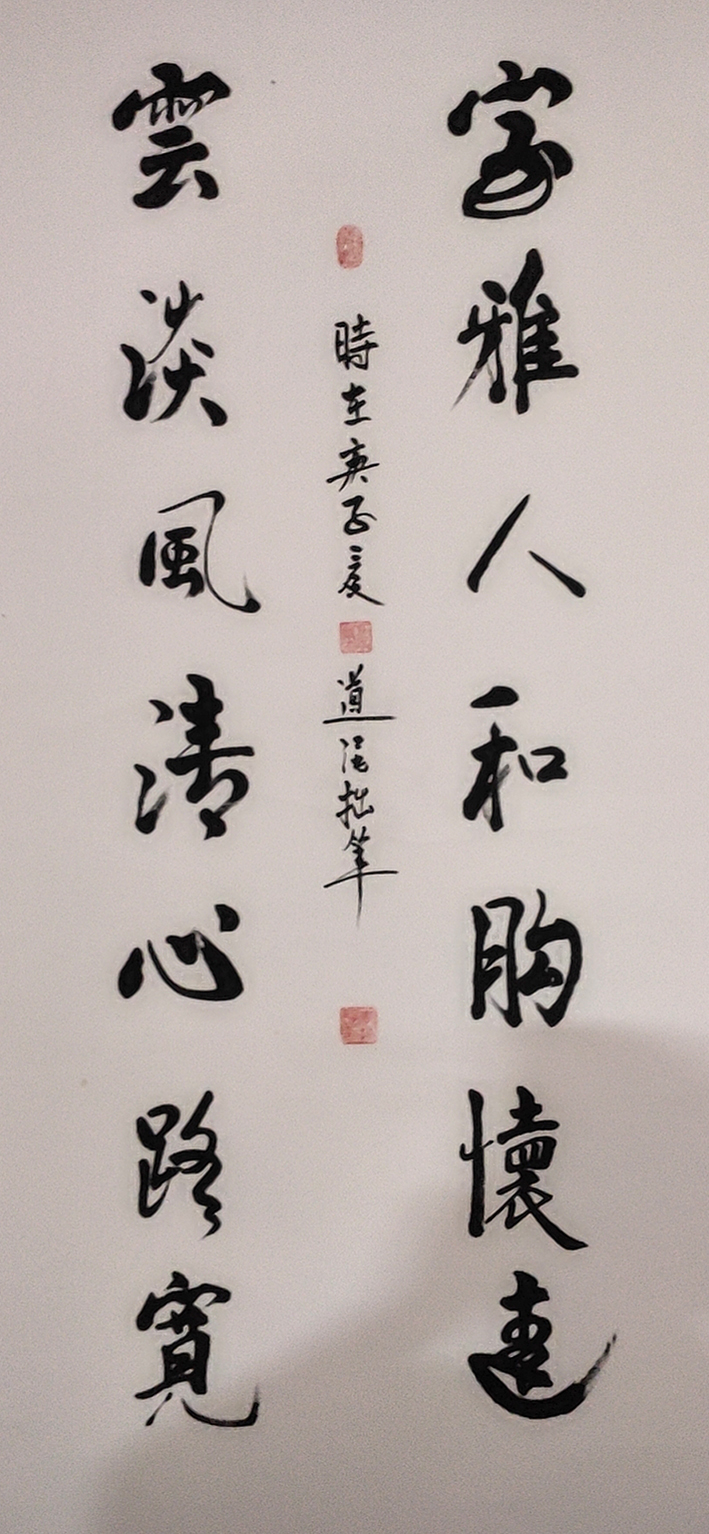 室雅人和胸懷達
時在庚子夏 道拙筆
雲淡風清心路寬